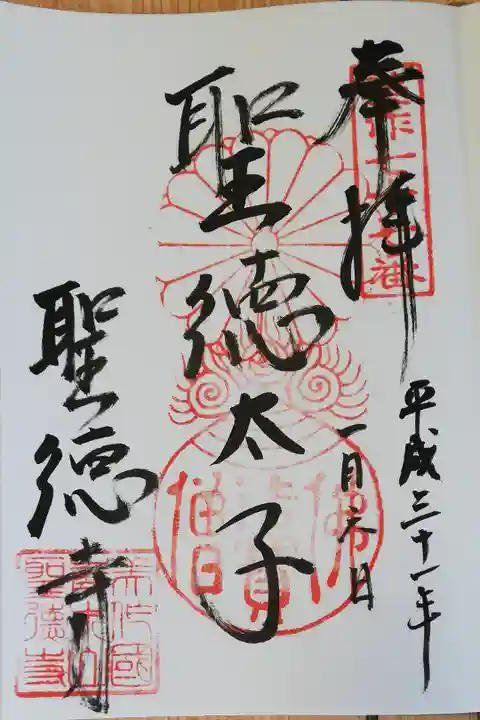 奉拝
平成三十一年
一月六日
聖徳太子
聖徳寺
佛法寳僧
美作國
聖德寺